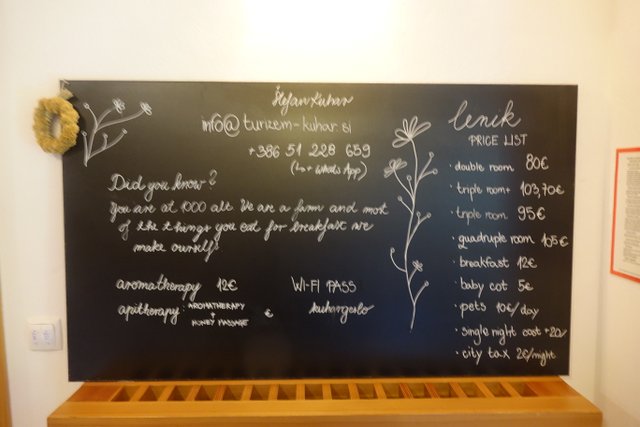 Štefan Kuhar
info@turizem-kuhar.si
+386 51 228 659
(WhatsApp)
Did you know?
You are at 1000 alt. We are a farm and most
of the things you eat for breakfast we
make ourself!
aromatherapy 12€
apitherapy: AROMATHERAPY
+
HONEY MASSAGE
€
WI-FI PASS
kuhargeslo
lenik
PRICE LIST
· double room 80€
· triple room+ 103,70€
· triple room 95€
· quadruple room 105€
· breakfast 12€
· baby cot 5€
· pets 10€/day
· single night cost +20/
· city tax 2€/night